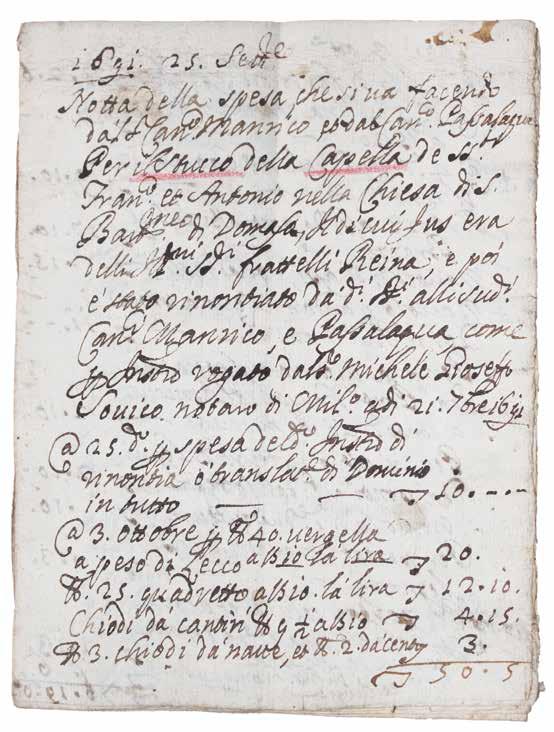 1691. 25. Sett.e
Notta della spesa che si va facendo
dal S.r Can.co Manrico et dal Can.co Passalaqua
Per il Stucco della Capella de SS.ti
Fran.co et Antonio nella Chiesa di S.
Bart.meo di Domala, il di cui Jus era
delli Ill.mi SS.ri frattelli Reina, e poi
è stato rinontiato da d.i SS.ri alli sud.i
Can.ci Manrico, e Passalaqua come
p Instro rogato dal S.r Michele Gioseffo
Sovico notaro di Mil.o adi 21. 7bre 1691
@ 25. d.o p spesa del d.o Instro di
rinontia o translat.e di Dominio
in tutto — — 10. - . -
@ 3. ottobre p lb 40. vergella
a peso di Lecco a ss 10 la lira 20.
lb. 25. quadretto a ss 10. la lira 12.10.
Chiodi da cantiri lb 9 ½ a ss 10 4.15.
lb 3. chiodi da nave, et lb 2. da cent 3.
50.5